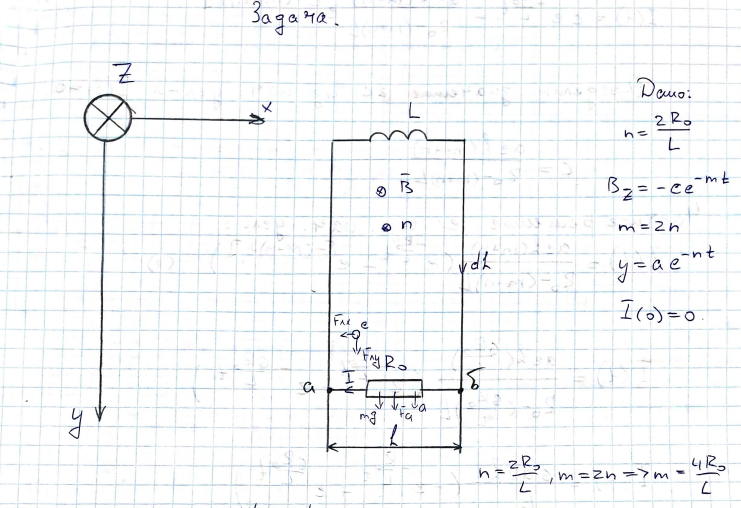 Задача.
Z
x
y
L
B̅
n
dL
Fлх e
Fлy R₀
a I б
mg Fa a
L
Дано:
n = 2R₀/L
B_z = -ce^{-mt}
m = 2n
y = ae^{-nt}
I(0) = 0.
n = 2R₀/L, m = 2n => m = 4R₀/L